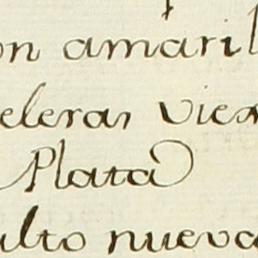 on amaril
eleras vie
Plata
ulto nueva